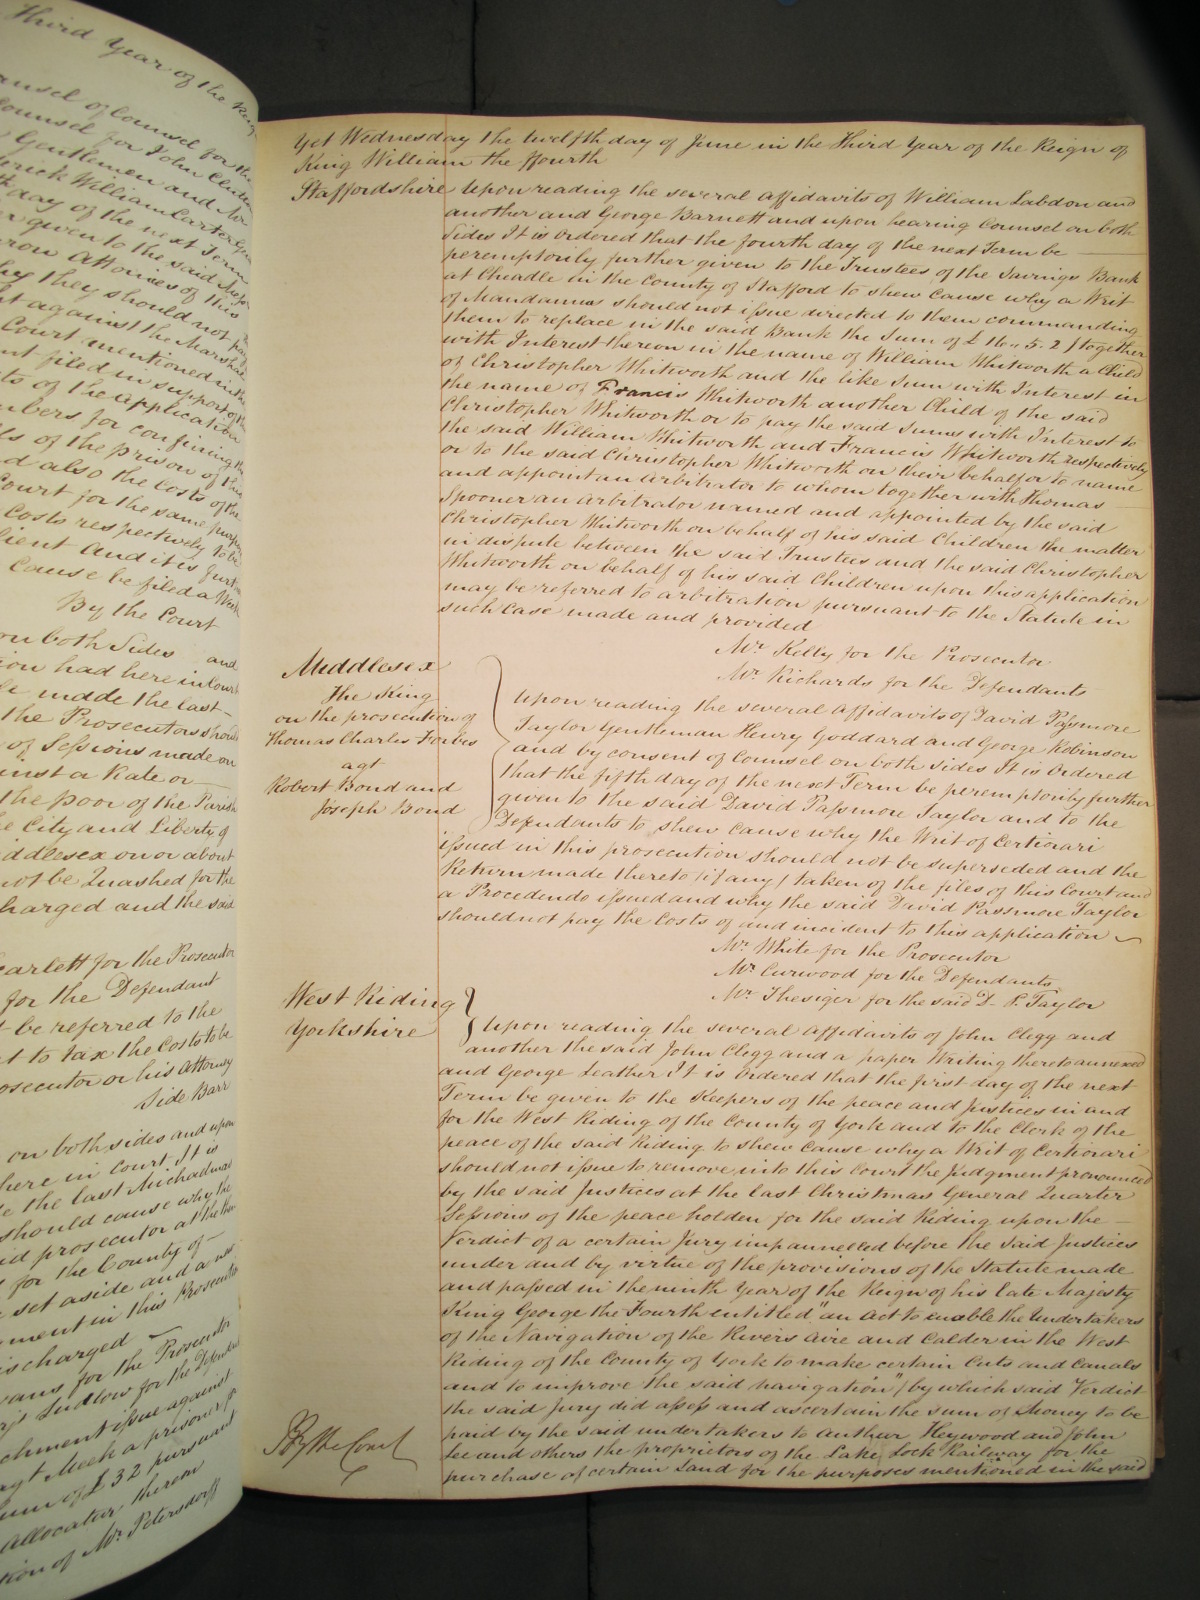 Third Year of the King
Counsel of Counsel for the
Counsel for John Clutton
Gentlemen and Mr
William Carter
day of the next Term
given to the said
Attornies of this
they should not pay
against the Marshal
Court mentioned in the
filed in support of the
of the application
for confining the
of the prison of this
and also the costs of the
Court for the same purpose
Costs respectively to be
and it is further
Cause be filed a Week
By the Court
on both Sides and
had here in Court
made the last
the Prosecutors should
of Sessions made on
against a Rate or
the poor of the Parish
City and Liberty of
Middlesex on or about
not be Quashed for the
charged and the said
Scarlett for the Prosecutor
for the Defendant
be referred to the
to tax the Costs to be
prosecutor or his Attorney
Side Barr
on both sides and upon
here in Court It is
the last Michaelmas
should cause why the
said prosecutor at the
for the County of
set aside and a new
in this Prosecution
is charged
for the Prosecutor
Ludlow for the Defendant
issue against
Meek a prisoner
sum of £32 pursuant
Allocatur thereon
of Mr. Petersdorff
Yet Wednesday the twelfth day of June in the Third Year of the Reign of
King William the ffourth
Staffordshire Upon reading the several affidavits of William Labdon and
another and George Barnett and upon hearing Counsel on both
Sides It is Ordered that the fourth day of the next Term be
peremptorily further given to the Trustees of the Savings Bank
at Cheadle in the County of Stafford to shew Cause why a Writ
of Mandamus should not issue directed to them commanding
them to replace in the said Bank the Sum of £16 „ 5. 2 / together
with Interest thereon in the name of William Whitworth a Child
of Christopher Whitworth and the like Sum with Interest in
the name of Francis Whitworth another Child of the said
Christopher Whitworth or to pay the said Sums with Interest to
the said William Whitworth and Francis Whitworth respectively
or to the said Christopher Whitworth on their behalf or to name
and appoint an Arbitrator to whom together with Thomas
Spooner an arbitrator named and appointed by the said
Christopher Whitworth on behalf of his said Children the matter
in dispute between the said Trustees and the said Christopher
Whitworth on behalf of his said Children upon this application
may be referred to arbitration pursuant to the Statute in
such Case made and provided
Mr. Kelly for the Prosecutor
Mr. Richards for the Defendants
Middlesex
The King
on the prosecution of
Thomas Charles Forbes
agt
Robert Bond and
Joseph Bond
Upon reading the several Affidavits of David Passmore
Taylor Gentleman Henry Goddard and George Robinson
and by consent of Counsel on both sides It is Ordered
that the fifth day of the next Term be peremptorily further
given to the said David Passmore Taylor and to the
Defendants to shew Cause why the Writ of Certiorari
issued in this prosecution should not be superseded and the
Return made thereto (if any) taken of the files of this Court and
a Procedendo issued and why the said David Passmore Taylor
should not pay the Costs of and incident to this application
Mr. White for the Prosecutor
Mr. Curwood for the Defendants
Mr. Thesiger for the said D. P. Taylor
West Riding
Yorkshire
Upon reading the several affidavits of John Clegg and
another the said John Clegg and a paper Writing thereto annexed
and George Leather It is Ordered that the first day of the next
Term be given to the Keepers of the peace and Justices in and
for the West Riding of the County of York and to the Clerk of the
peace of the said Riding to shew Cause why a Writ of Certiorari
should not issue to remove into this Court the Judgment pronounced
by the said Justices at the last Christmas General Quarter
Sessions of the peace holden for the said Riding upon the
Verdict of a certain Jury impannelled before the said Justices
under and by virtue of the provisions of the Statute made
and passed in the ninth Year of the Reign of his late Majesty
King George the Fourth entitled "an Act to enable the Undertakers
of the Navigation of the Rivers Aire and Calder in the West
Riding of the County of York to make certain Cuts and Canals
and to improve the said navigation" (by which said Verdict
the said Jury did assess and ascertain the sum of Money to be
paid by the said undertakers to Arthur Heywood and John
Lee and others the proprietors of the Lake Lock Railway for the
purchase of certain Land for the purposes mentioned in the said
By the Court